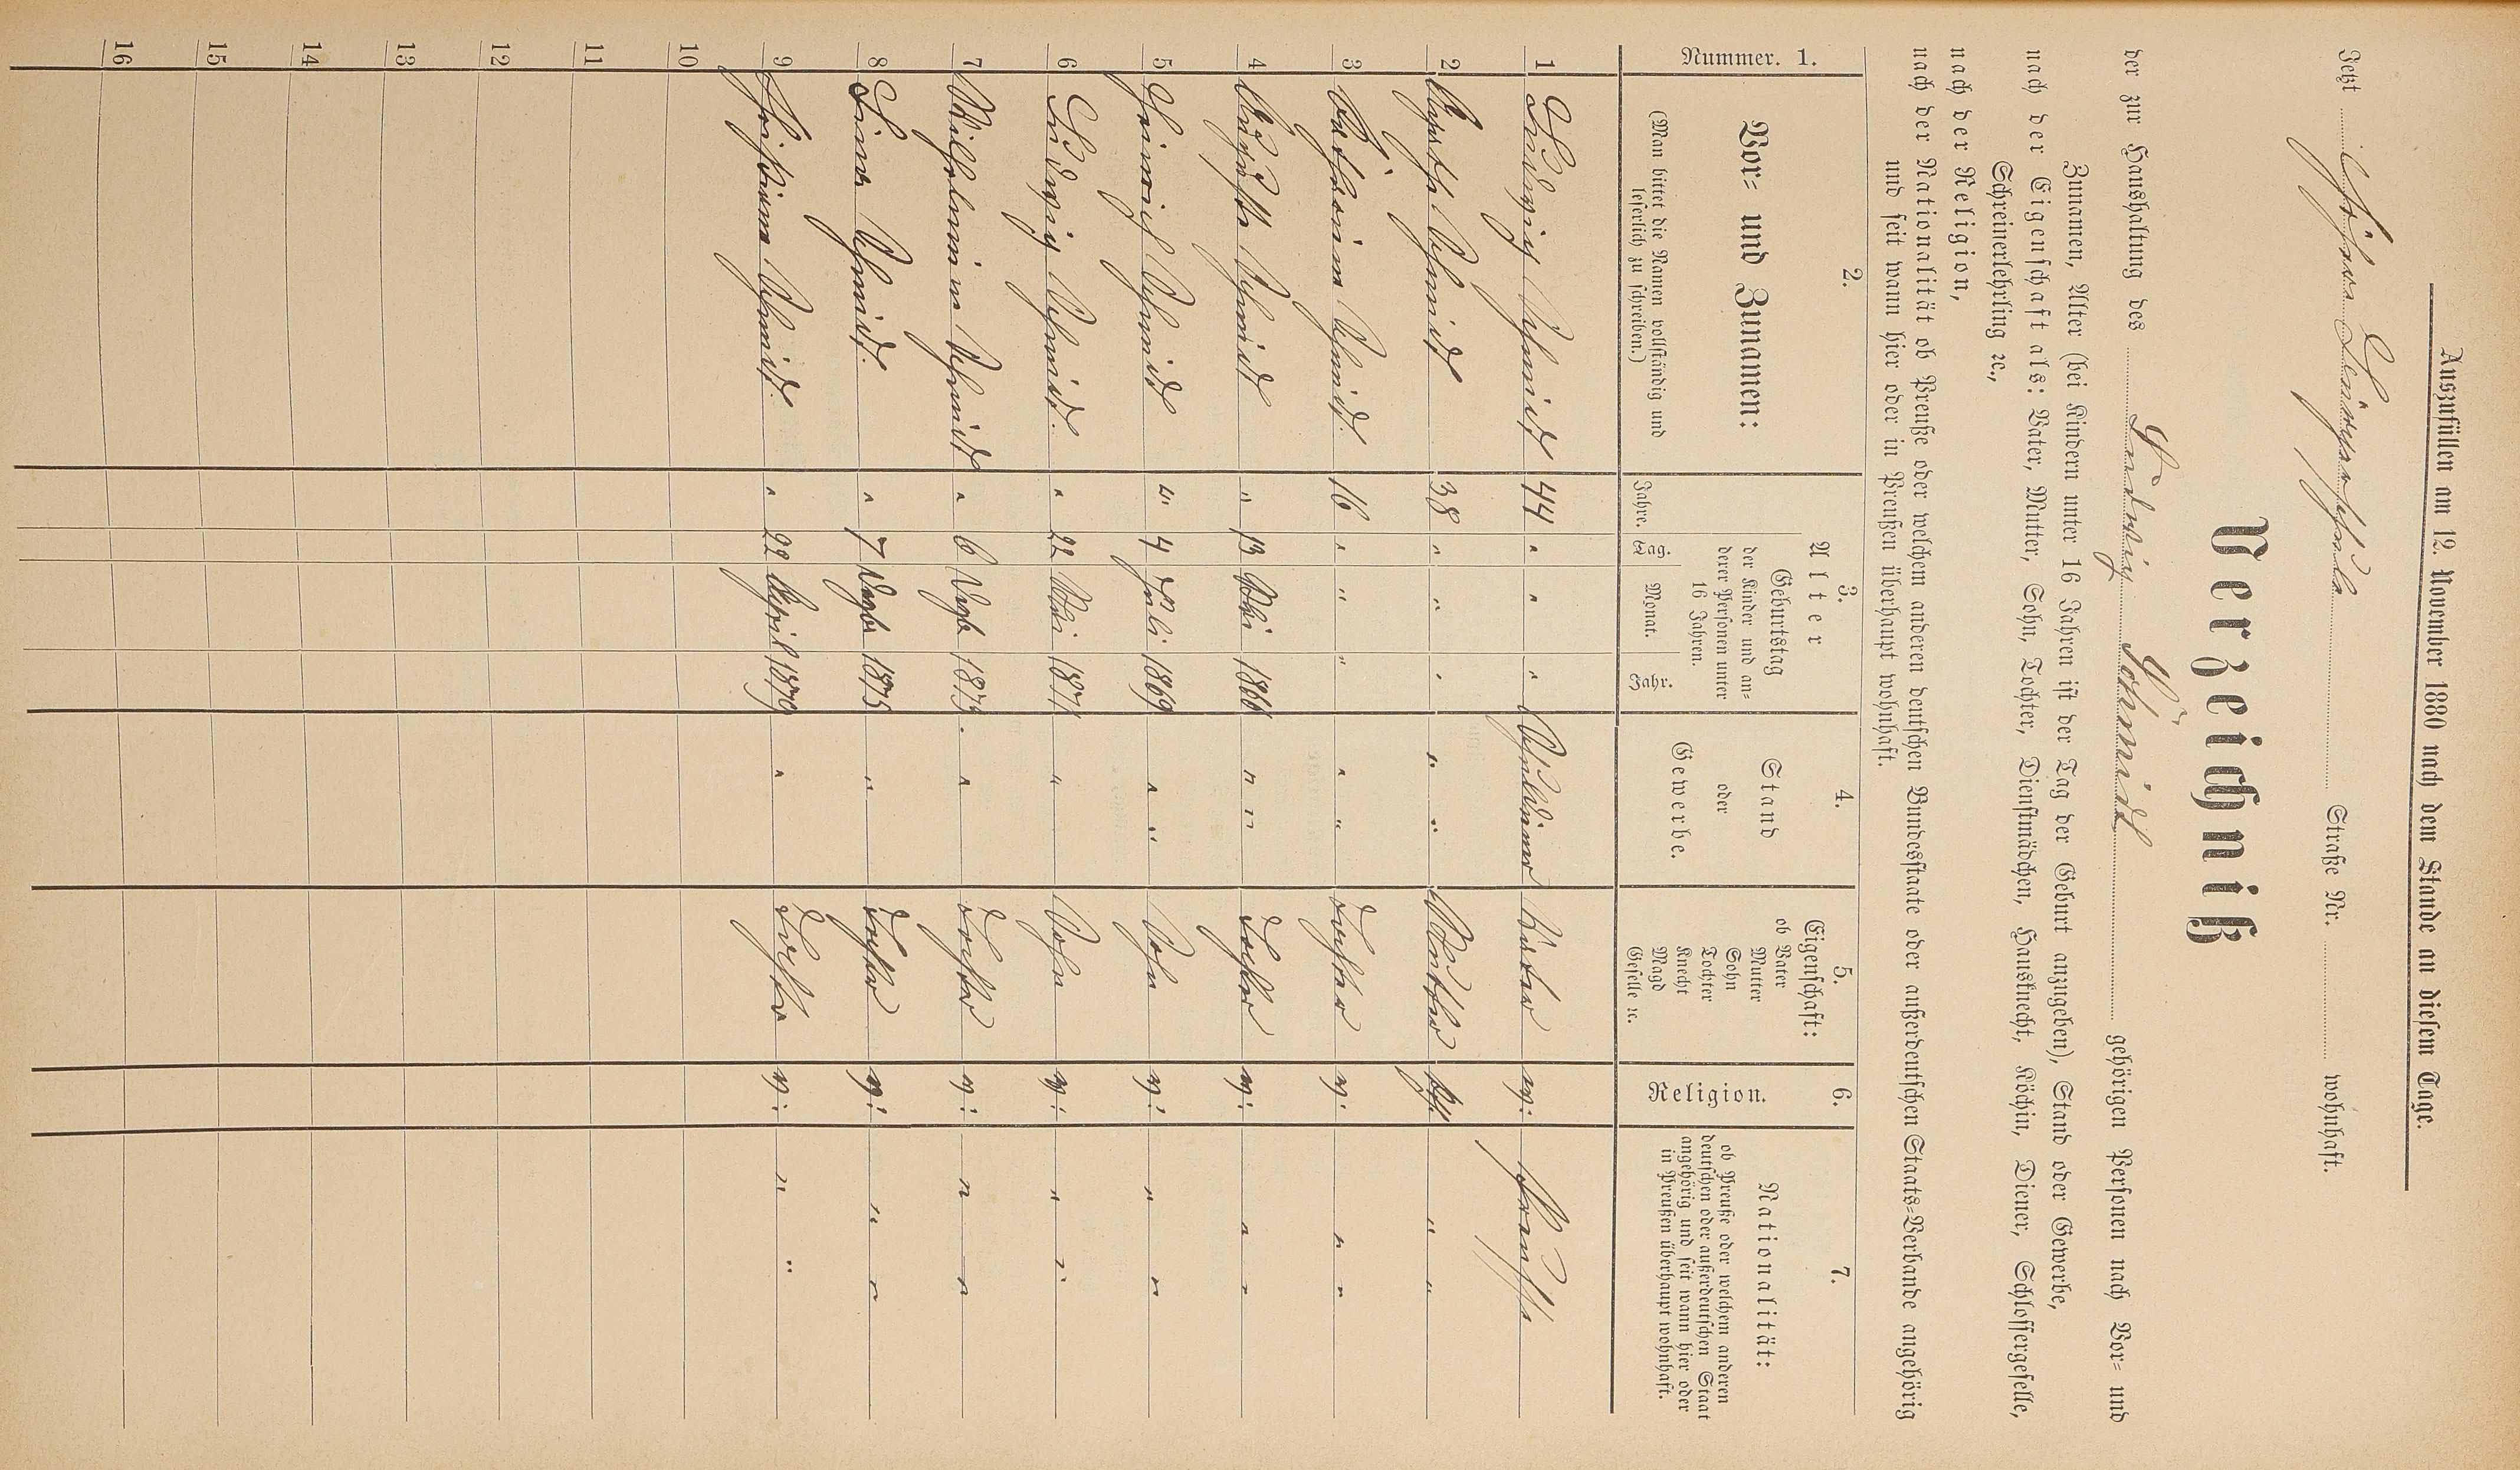 Auszufüllen am 12. November 1880 nach dem Stande an diesem Tage.
Jetzt Höhere Bürgerschule Straße Nr. wohnhaft.
Verzeichniß
der zur Haushaltung des Ludwig Schmidt gehörigen Personen nach Vor- und
Zunamen, Alter (bei Kindern unter 16 Jahren ist der Tag der Geburt anzugeben), Stand oder Gewerbe,
nach der Eigenschaft als: Vater, Mutter, Sohn, Tochter, Dienstmädchen, Hausknecht, Köchin, Diener, Schlossergeselle,
Schreinerlehrling ꝛc.,
nach der Religion,
nach der Nationalität ob Preuße oder welchem anderen deutschen Bundesstaate oder außerdeutschen Staats-Verbande angehörig
und seit wann hier oder in Preußen überhaupt wohnhaft.
Nummer. 1.
2.
Vor- und Zunamen:
(Man bittet die Namen vollständig und
leserlich zu schreiben.)
3.
Alter
Jahre.
Geburtstag
der Kinder und an-
derer Personen unter
16 Jahren.
Tag. Monat. Jahr.
4.
Stand
oder
Gewerbe.
5.
Eigenschaft:
ob Vater
Mutter
Sohn
Tochter
Knecht
Magd
Geselle ꝛc.
6.
Religion.
7.
Nationalität:
ob Preuße oder welchem anderen
deutschen oder außerdeutschen Staat
angehörig und seit wann hier oder
in Preußen überhaupt wohnhaft.
1 Ludwig Schmidt 44 " " " Schuldiener Vater ev: Preuße
2 Schmidt 38 " " " " " Mutter " "
3 Schmidt. 16 " " " " " Tochter ev. " "
4 Auguste Schmidt " 13 Mai 1866 " " Tochter ev: " "
5 Heinrich Schmidt " 4 Juli 1869 " " Sohn ev: " "
6 Ludwig Schmidt. " 22 Mai 1871 " Sohn ev: " "
7 Wilhelmine Schmidt " 6 1873. " Tochter ev: " "
8 Schmidt. " 7 1875 " Tochter ev: " "
9 Schmidt. " 22 April 1879 " Tochter ev: " "
10
11
12
13
14
15
16